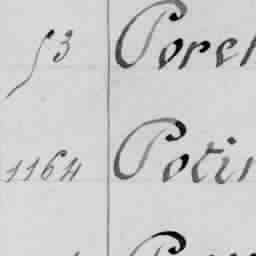 53 Porch
1164 Potin